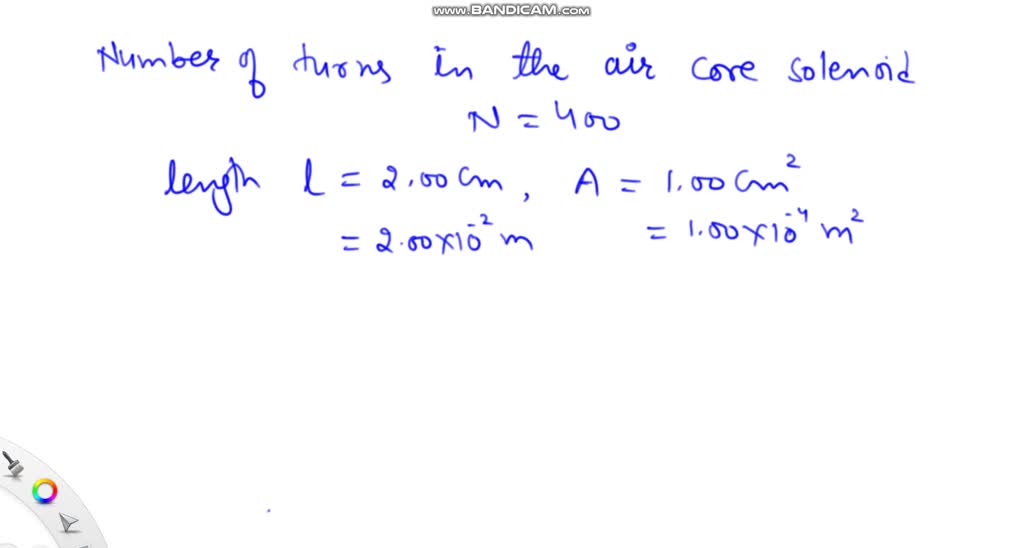 www.BANDICAM.com
Number of turns in the air core solenoid
N = 400
length l = 2.00 cm, A = 1.00 cm²
= 2.00×10⁻² m = 1.00×10⁻⁴ m²